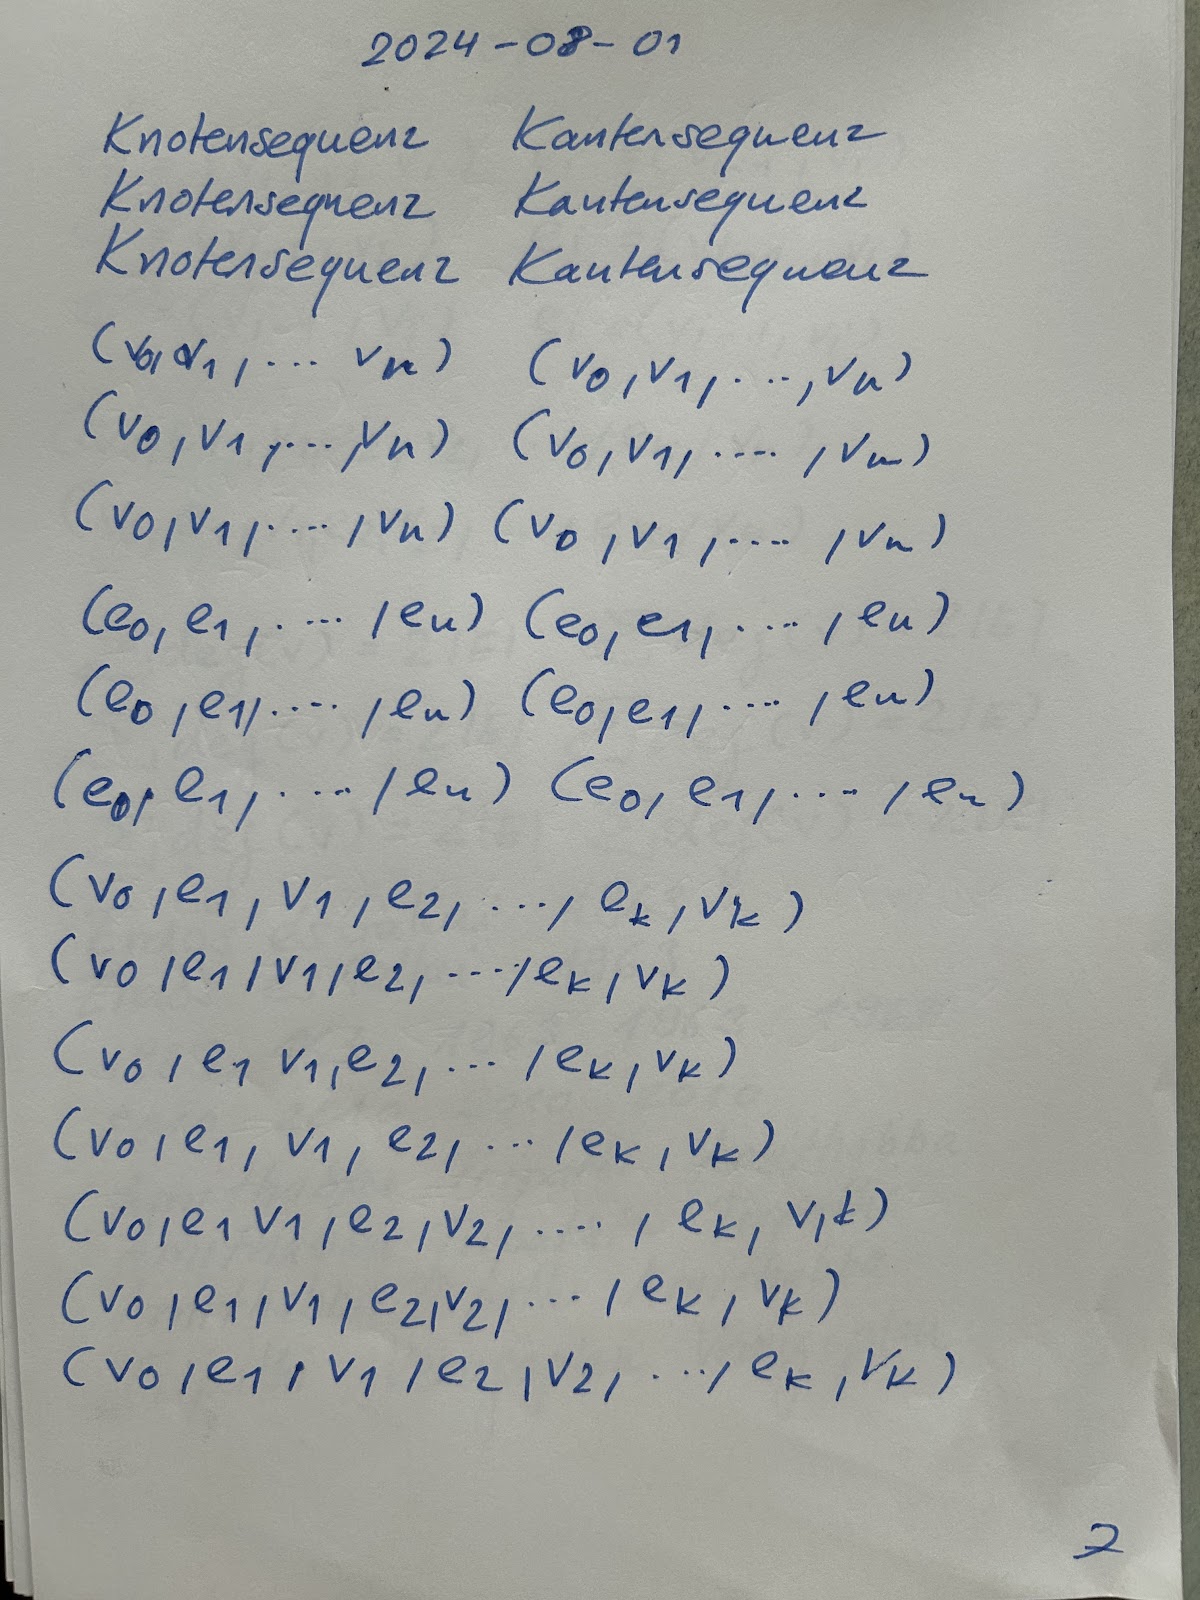 2024-08-01
Knotensequenz Kantensequenz
Knotensequenz Kantensequenz
Knotensequenz Kantensequenz
(v0, v1, ... vn) (v0, v1, ..., vn)
(v0, v1, ..., vn) (v0, v1, ...., vn)
(v0, v1, ...., vn) (v0, v1, ...., vn)
(e0, e1, ...., en) (e0, e1, ...., en)
(e0, e1, ...., en) (e0, e1, ...., en)
(e0, e1, ...., en) (e0, e1, ...., en)
(v0, e1, v1, e2, ..., ek, vk)
(v0, e1, v1, e2, ..., ek, vk)
(v0, e1 v1, e2, ..., ek, vk)
(v0, e1, v1, e2, ..., ek, vk)
(v0, e1 v1, e2, v2, ...., ek, v,k)
(v0, e1, v1, e2, v2, ..., ek, vk)
(v0, e1, v1, e2, v2, ..., ek, vk)